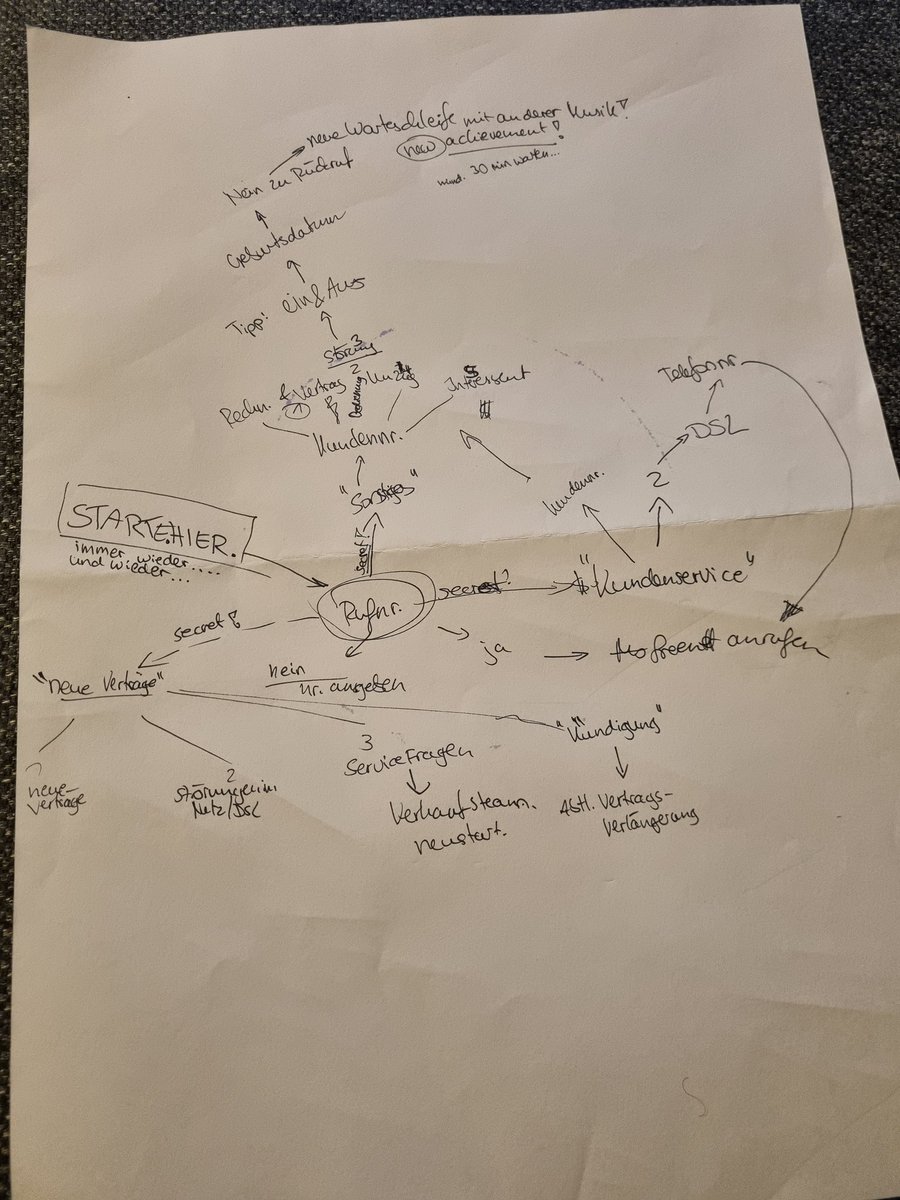 neue Warteschleife mit anderer Musik!
new achievement!
mind. 30 min warten...
Nein zu Rückruf
Geburtsdatum
Tipp: ein & Aus
3
Störung
Rechn. & Vertrag
2
Interessent
Kundennr.
"Sonstiges"
secret!
Telefonnr.
DSL
2
Kundennr.
STARTE HIER.
immer wieder....
und wieder...
Rufnr.
secret?
"Kundenservice"
secret!
ja
anrufen
nein
nr. angeben
"neue Verträge"
neue-
verträge
2
Störungen im
Netz/DSL
3
Servicefragen
Verkaufsteam.
neustart.
"Kündigung"
Abtl. Vertrags-
verlängerung